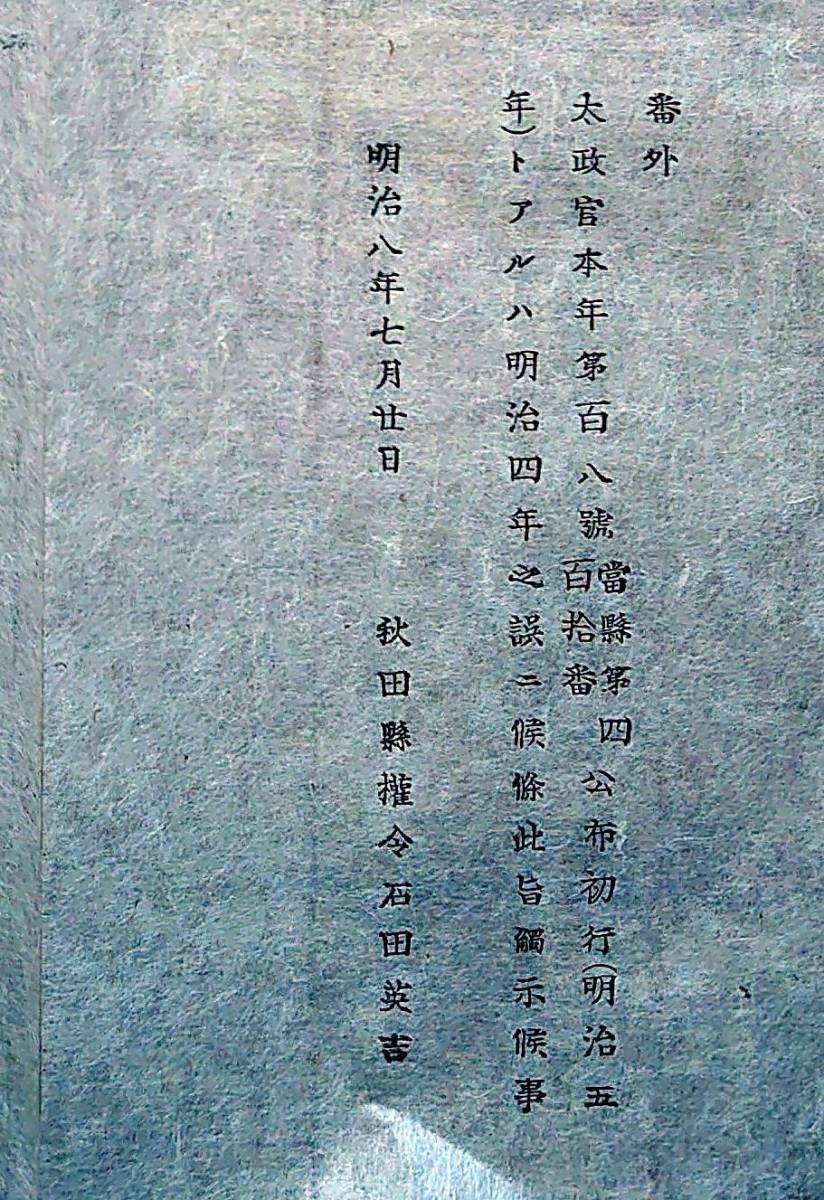 番外
太政官本年第百八號當縣第四百拾番公布初行(明治五
年)トアルハ明治四年之誤ニ候條此旨觸示候事
明治八年七月廿日 秋田縣權令石田英吉